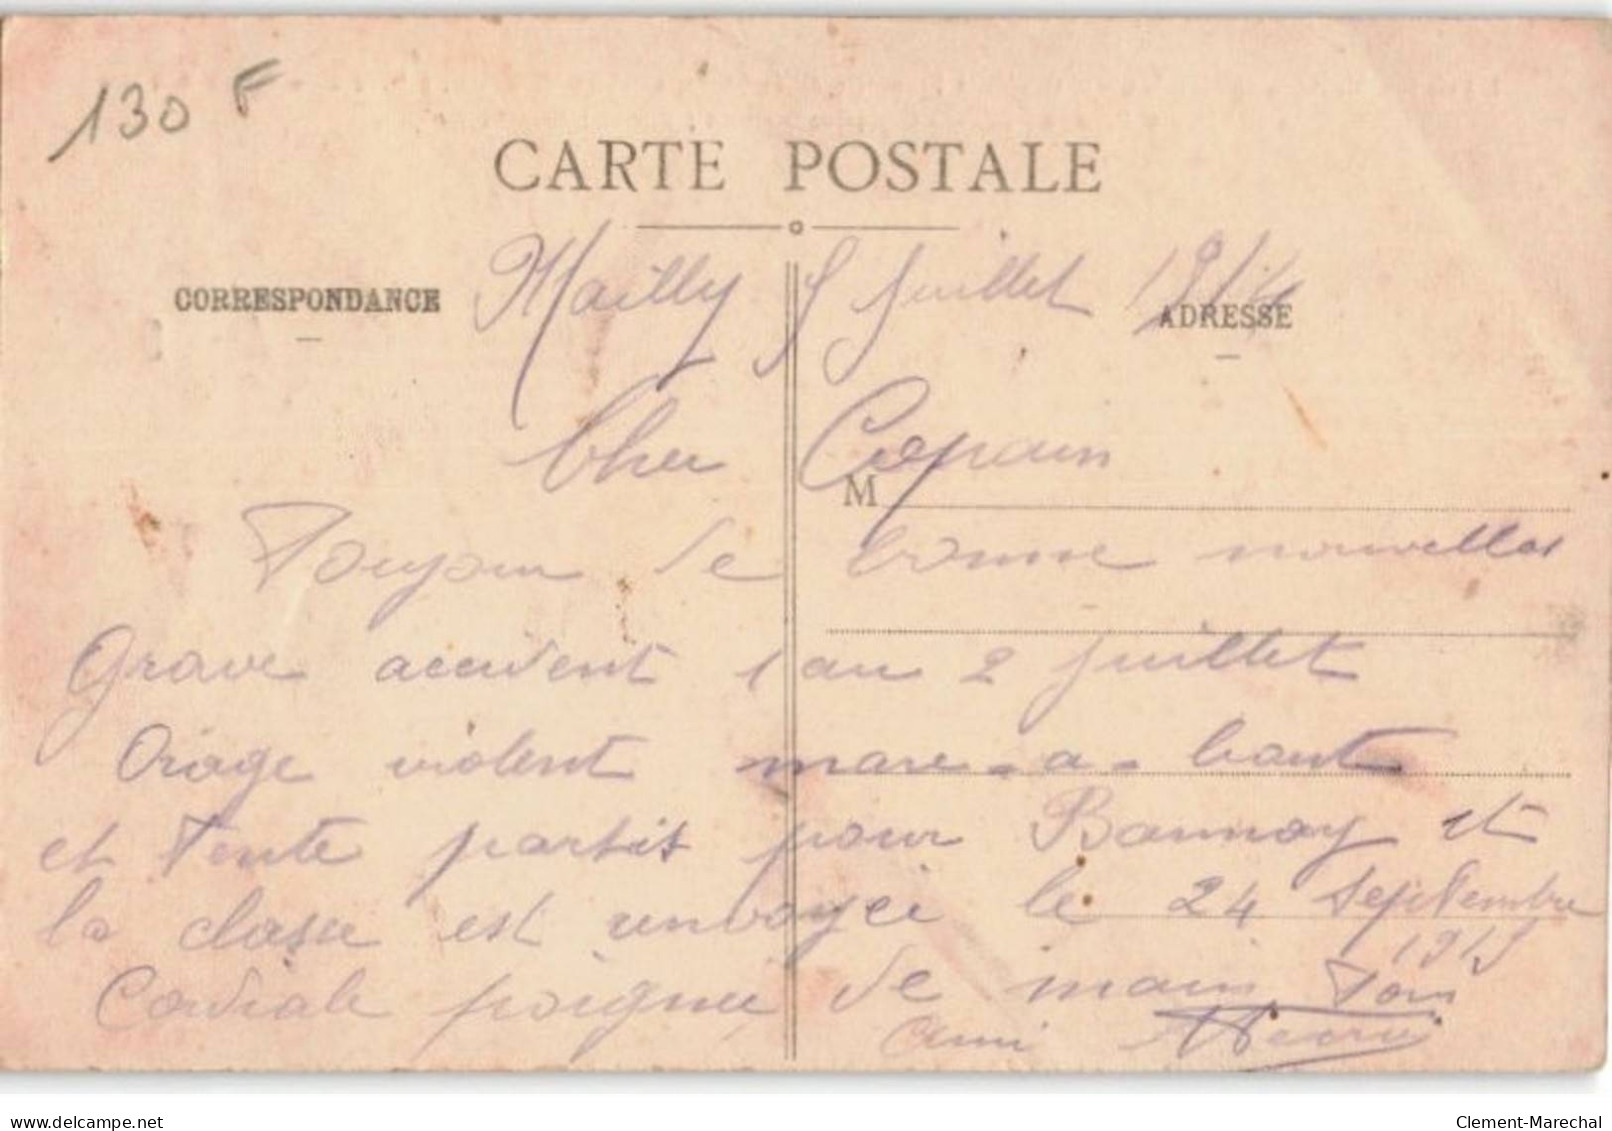 130 F
CARTE POSTALE
CORRESPONDANCE
ADRESSE
Mailly 5 Juillet 1914
Cher Copain
M
Toujour de bonne nouvelles
Grave accident 1 au 2 juillet
Orage violent mare-a-bout
et tente partit pour Bannay et
la classe est renvoyée le 24 Septembre
1915
Cordiale poignée de main Ton
ami Henri
delcampe.net
Clement-Marechal